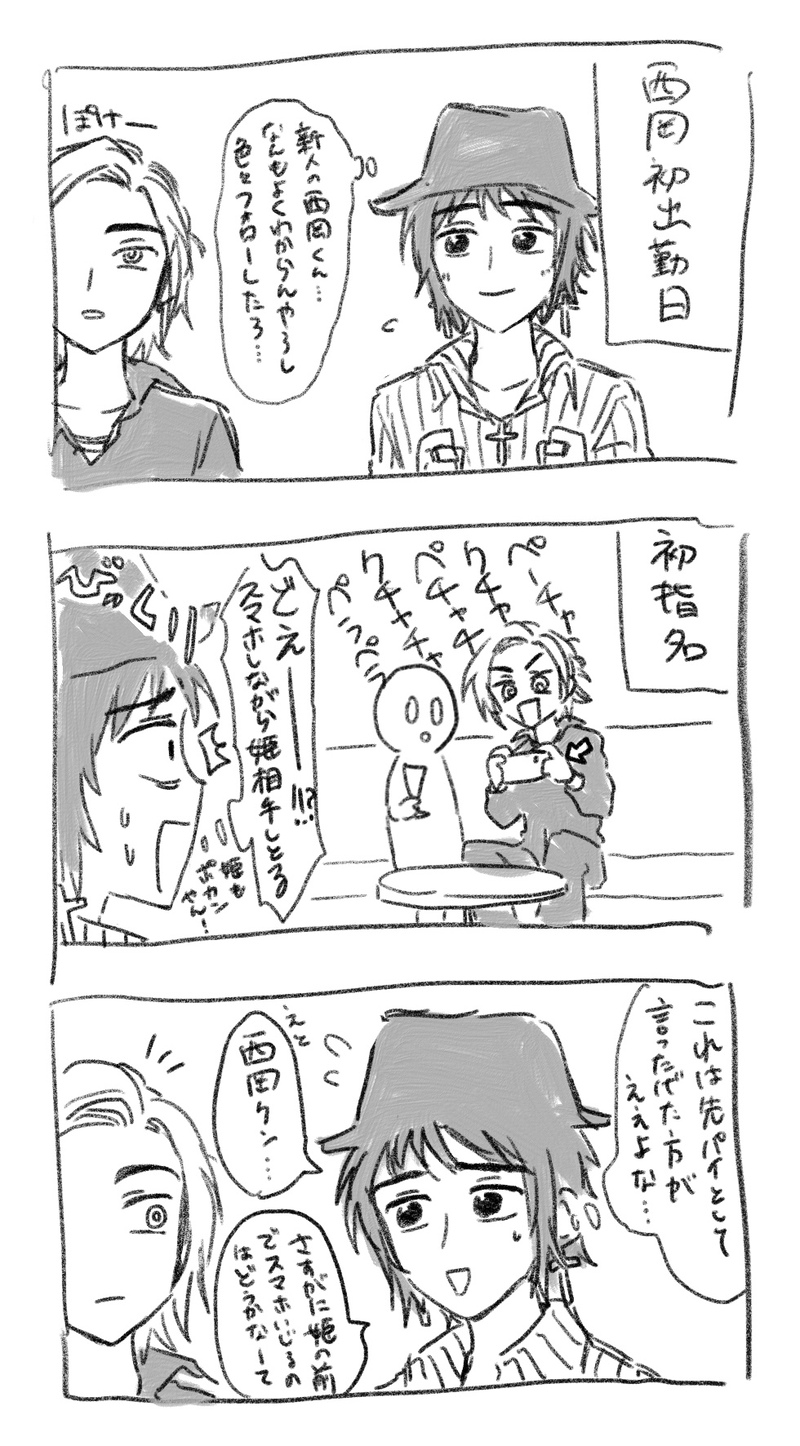 西岡初出勤日
新人の西岡くん…
なんもよくわからんやろし
色々フォローしたろ…
ぽけー
初指名
ペーチャ
クチャ
ペチャ
クチャ
ペラペラ
どえーーー!!?
スマホしながら姫相手しとる
姫も
ポカン
やん!
びっくり
これは先パイとして
言ったげた方が
ええよな…
えと
西岡クン…
さすがに姫の前
でスマホいじるの
はどうかなーて